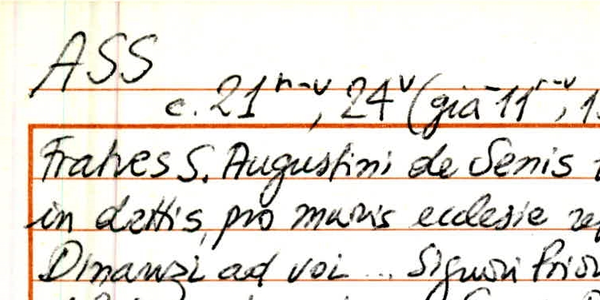 ASS
c. 21 r-v, 24 v (già 11 r-v, 1
Fratres S. Augustini de Senis
in dettis, pro muris ecclesie rep
Dinanzi ad voi ... Signori Prior